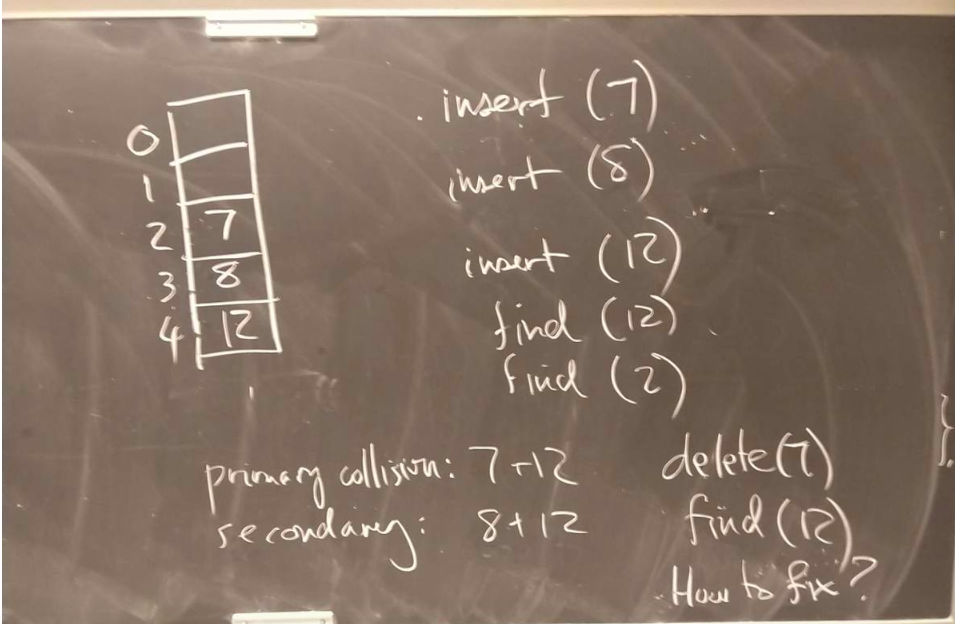 0
1
2 7
3 8
4 12
insert (7)
insert (8)
insert (12)
find (12)
find (2)
primary collision: 7+12
secondary: 8+12
delete(7)
find (12)
How to fix?